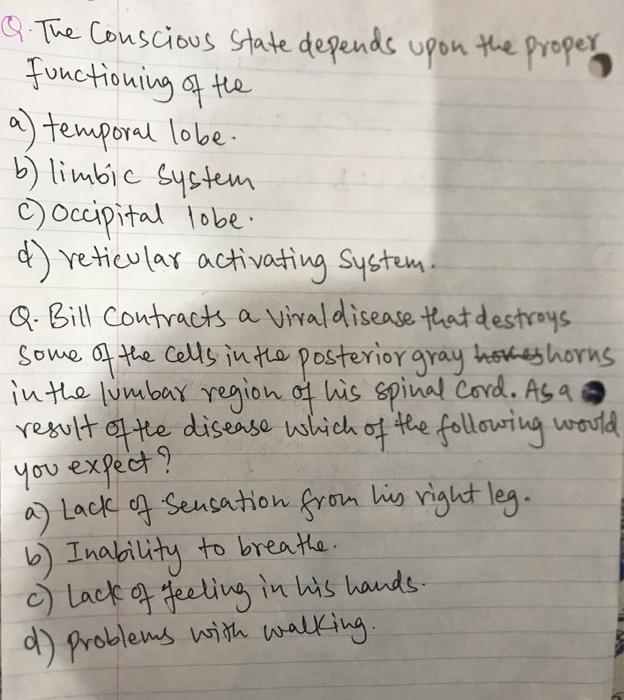 Q. The Conscious State depends upon the proper
functioning of the
a) temporal lobe.
b) limbic system
c) occipital lobe.
d) reticular activating system.
Q. Bill Contracts a viral disease that destroys
some of the cells in the posterior gray hornes horns
in the lumbar region of his spinal cord. As a
result of the disease which of the following would
you expect?
a) Lack of Sensation from his right leg.
b) Inability to breathe.
c) Lack of feeling in his hands.
d) problems with walking.